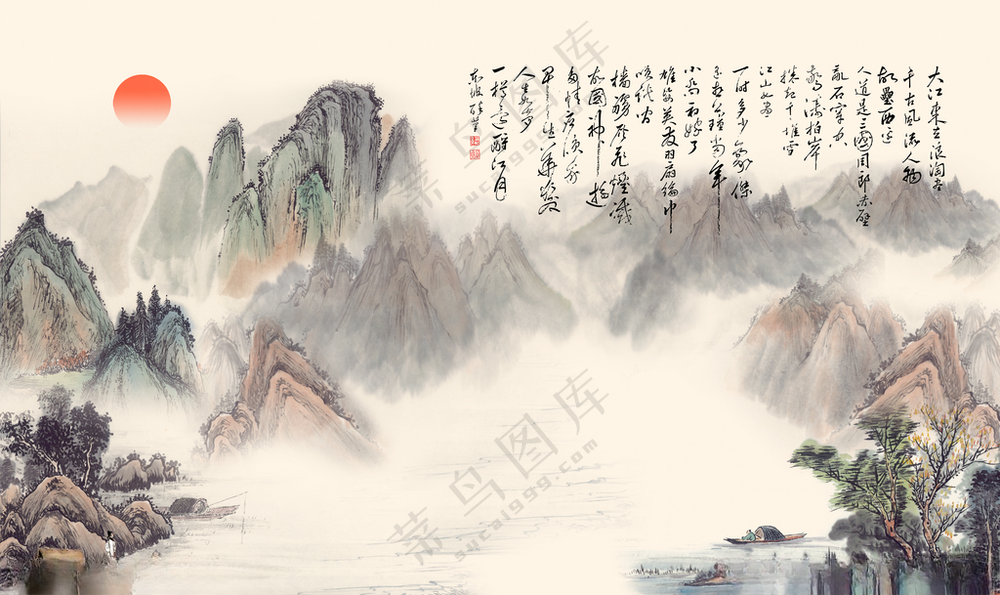 大江東去浪淘尽
千古風流人物
故壘西边
人道是三國周郎赤壁
亂石穿空
驚濤拍岸
捲起千堆雪
江山如畫
一时多少豪傑
遥想公瑾當年
小喬初嫁了
雄姿英发羽扇綸巾
談笑間
樯櫓灰飛煙滅
故國神遊
多情应笑我
早生華髮
人生如夢
一樽還酹江月
东坡
菜鸟图库
sucai999.com
菜鸟图库
sucai999.com